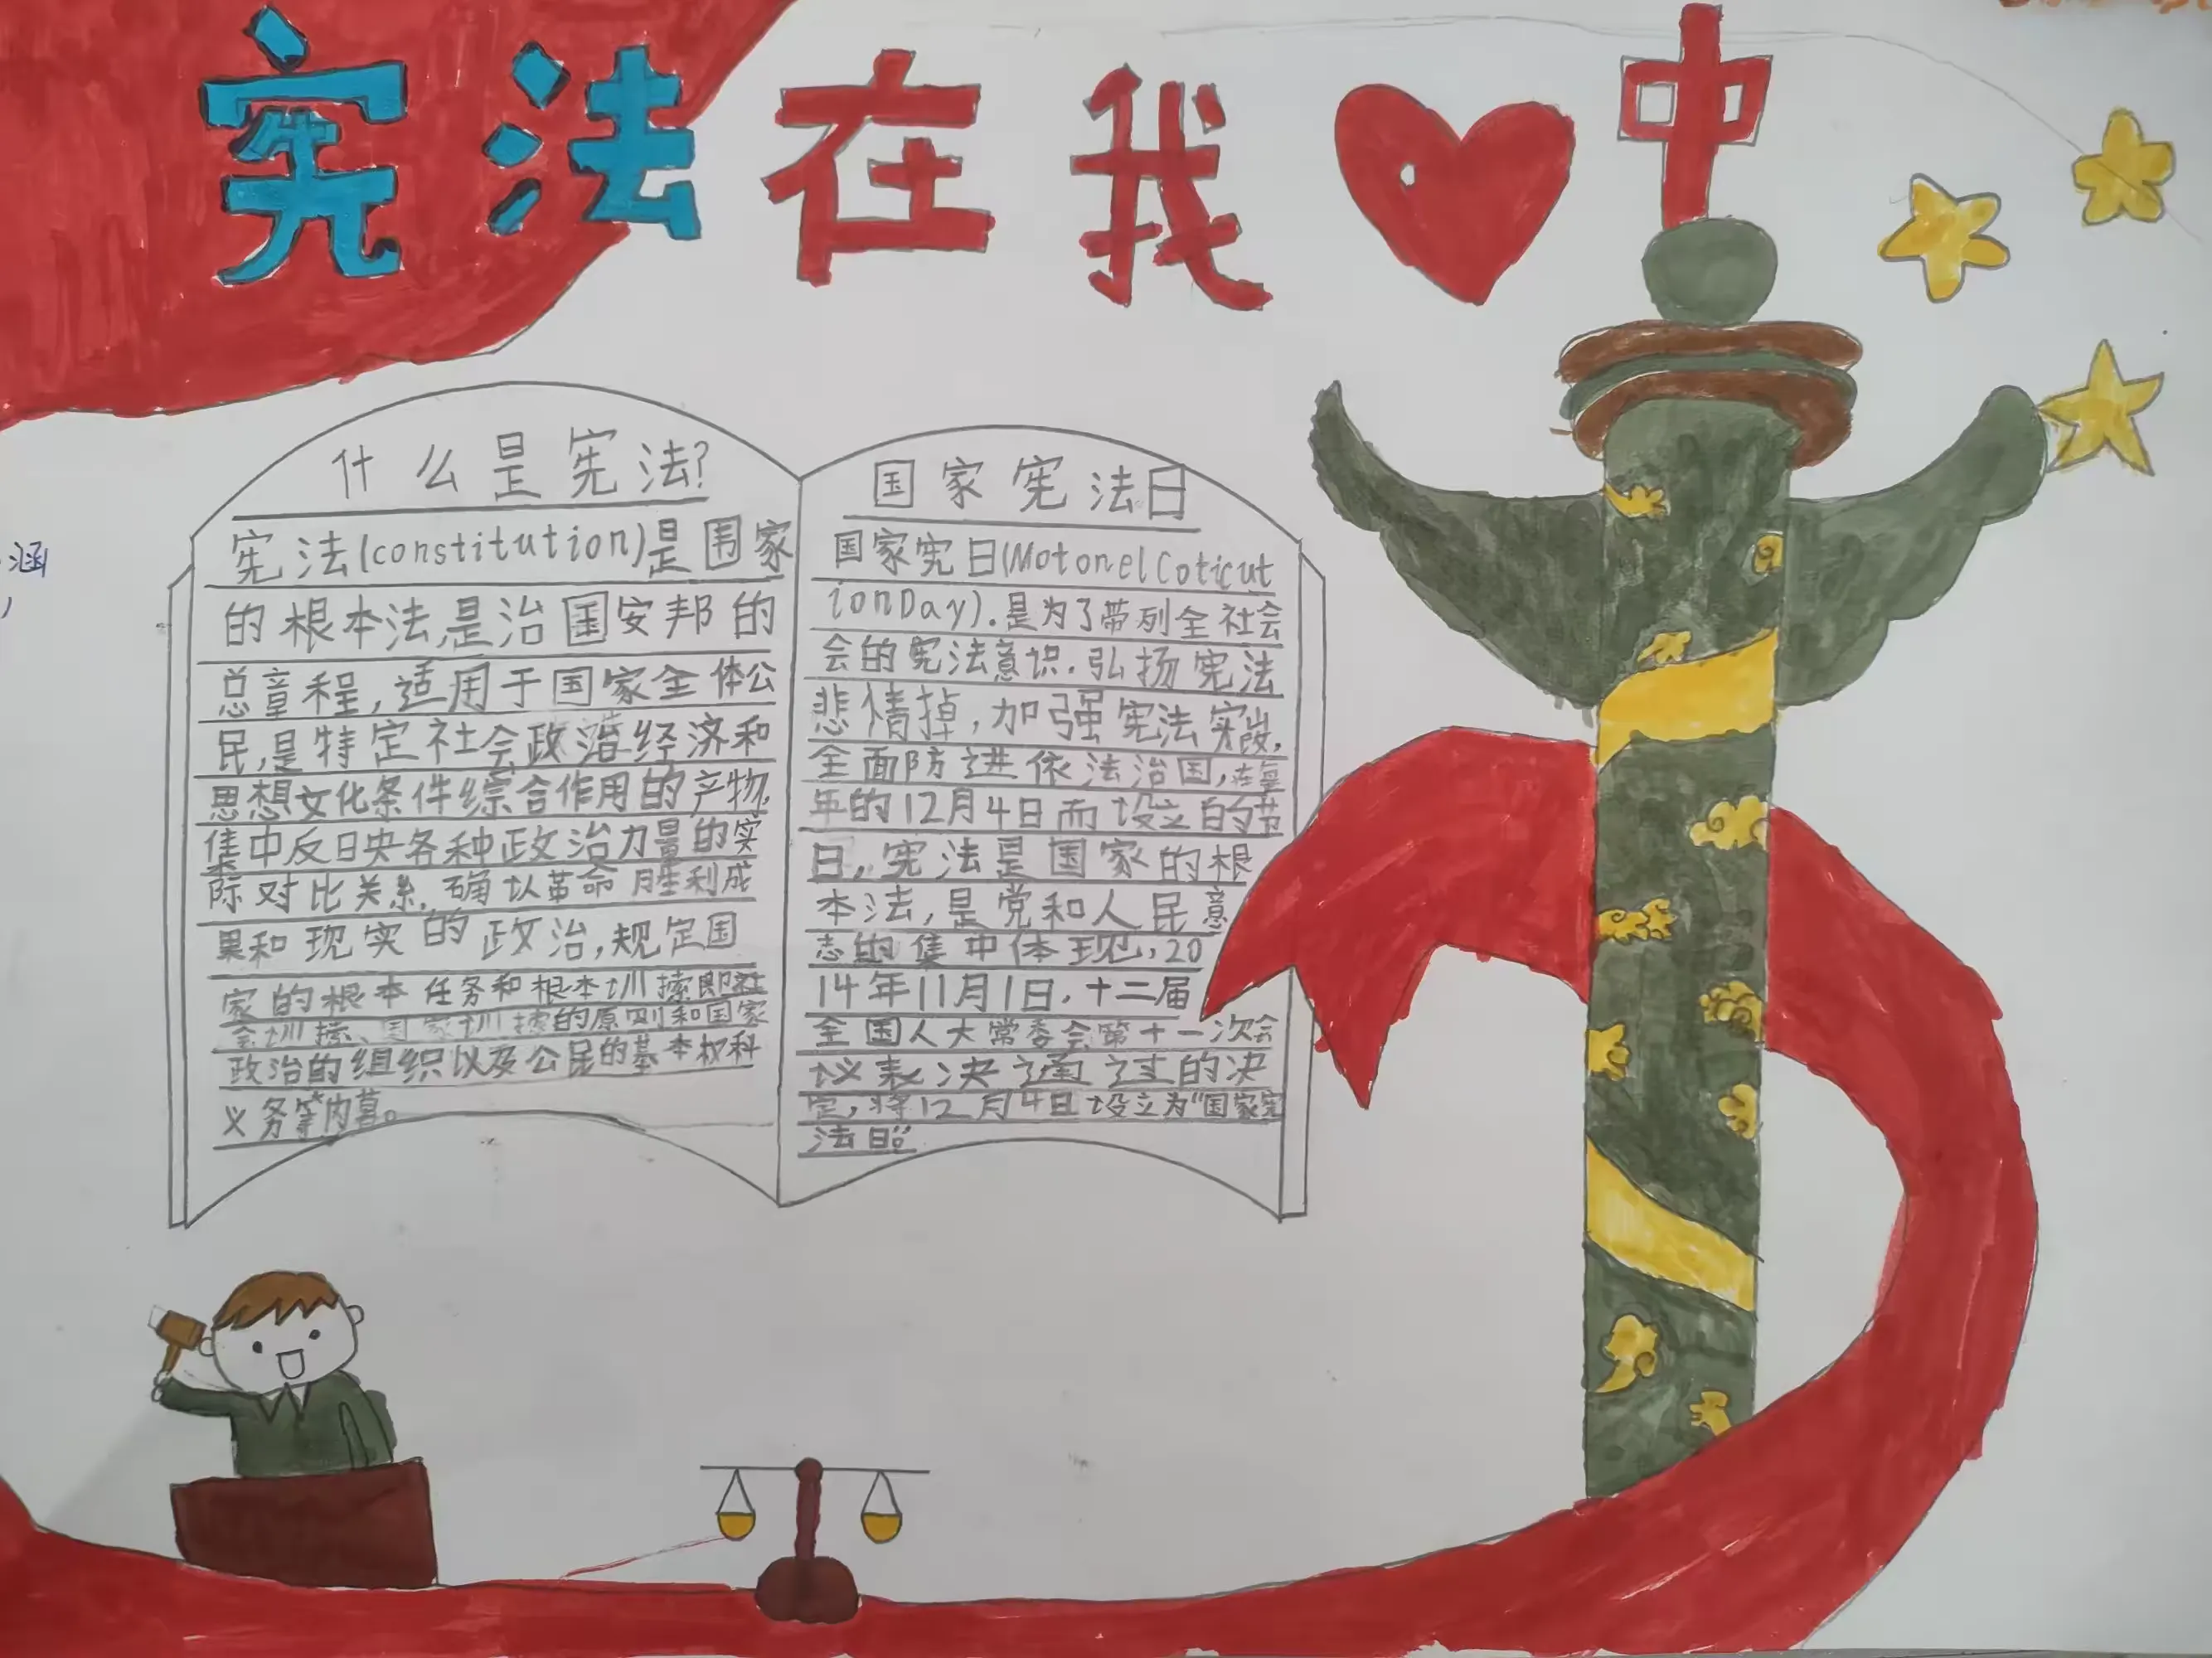 宪法在我中
涵
什么是宪法?
宪法(constitution)是国家
的根本法,是治国安邦的
总章程,适用于国家全体公
民,是特定社会政治经济和
思想文化条件综合作用的产物,
集中反日央各种政治力量的实
际对比关系,确认革命胜利成
果和现实的政治,规定国
家的根本任务和根本
政治的组织以及公民的基本权科
义务等内
国家宪法日
国家宪日(Motonel Coticut
ionDay).是为了带列全社会
会的宪法意识.弘扬宪法
悲情掉,加强宪法实
全面防进依法治国,在每
年的12月4日而设立的节
日,宪法是国家的根
本法,是党和人民意
志的集中体现,20
14年11月1日,十二届
全国人大常委会第十一次会
议表决通过的决
定,将12月4日设立为"国家宪
法日"